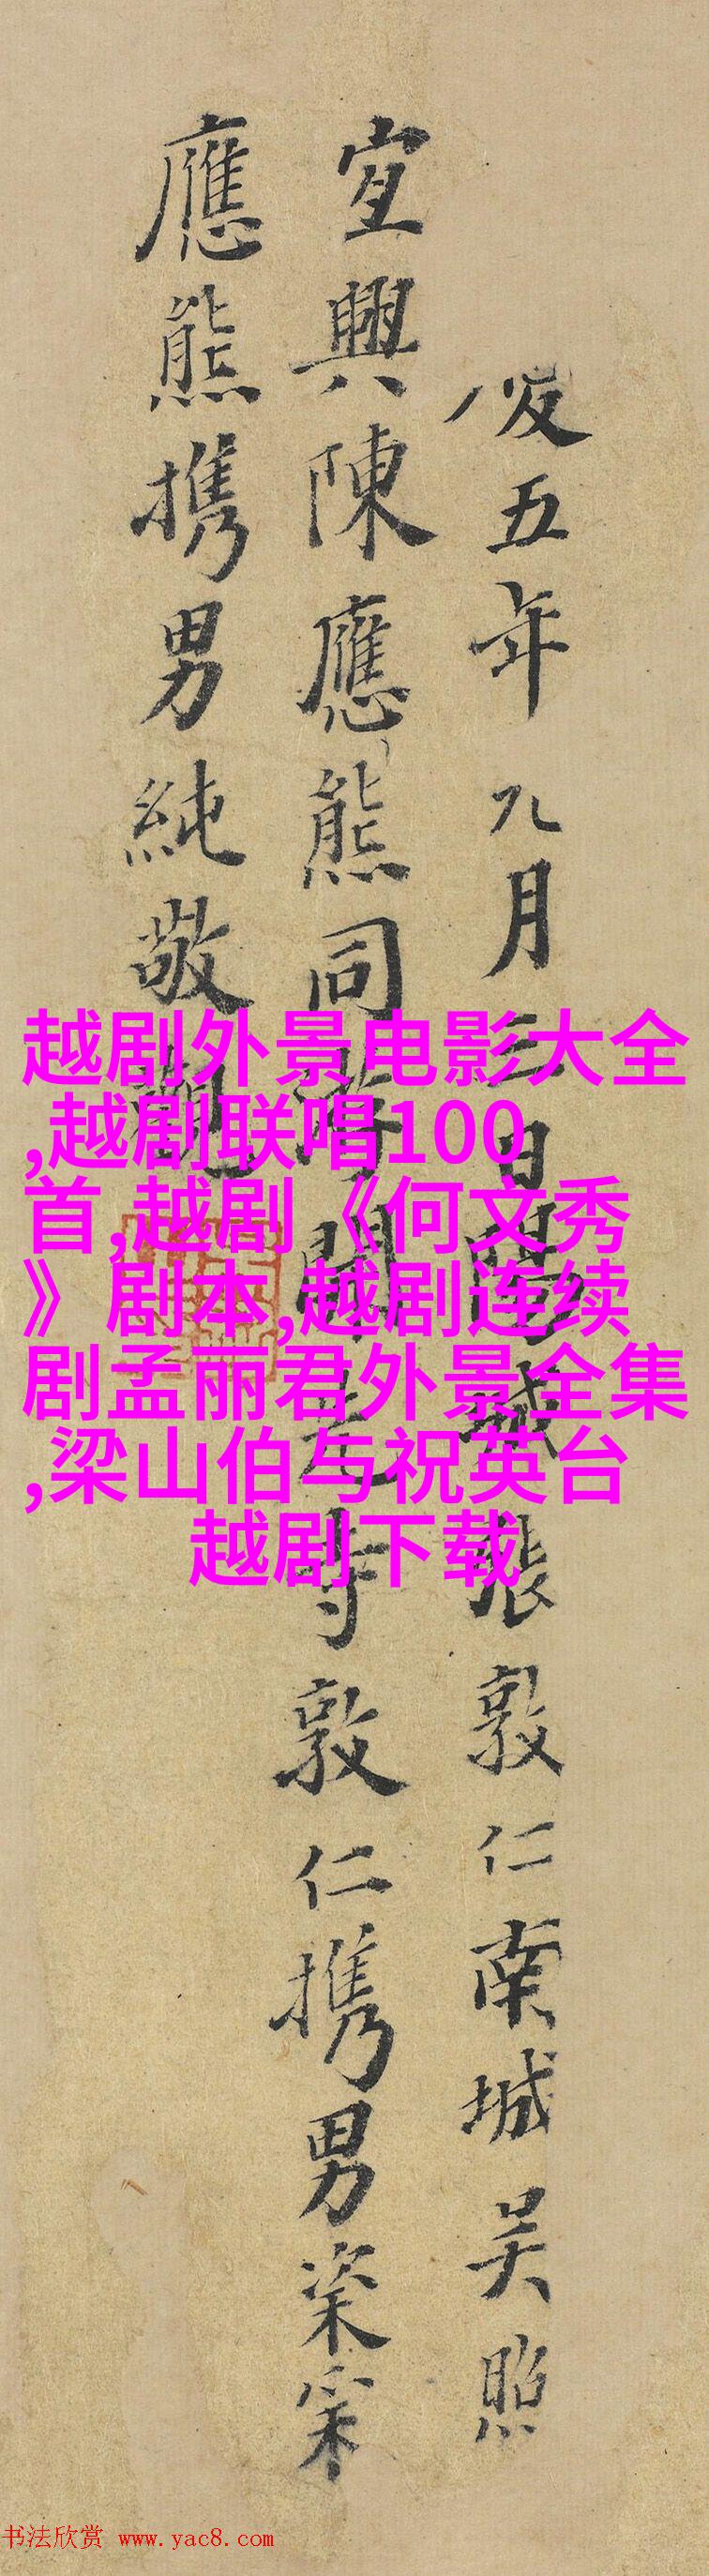 五年九月三日陽城張敦仁南城吳照
宜興陳應熊同游開元寺敦仁携男
應熊携男純敬觀
越剧外景电影大全
,越剧联唱100
首,越剧《何文秀
》剧本,越剧连续
剧孟丽君外景全集
,梁山伯与祝英台
越剧下载
书法欣赏 www.yac8.com